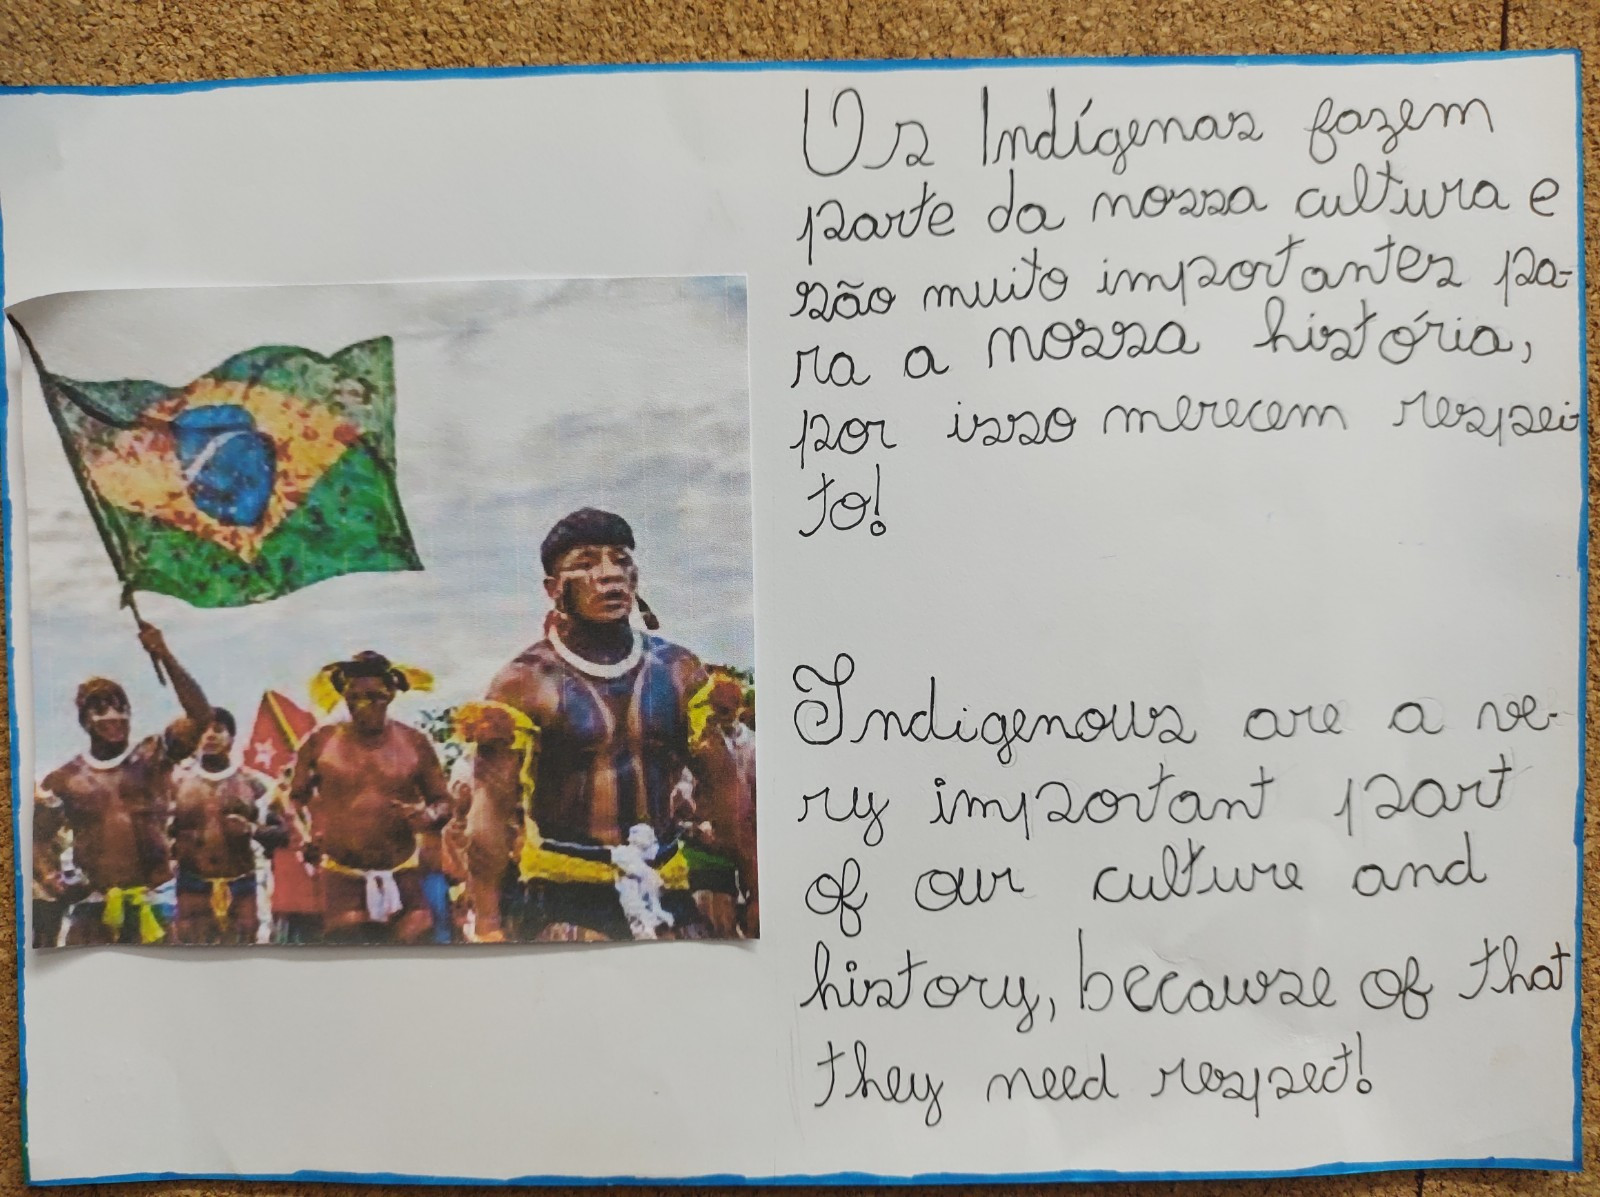 Os Indígenas fazem
parte da nossa cultura e
são muito importantes pa-
ra a nossa história,
por isso merecem respei
to!
Indigenous are a ve-
ry important part
of our culture and
history, because of that
they need respect!